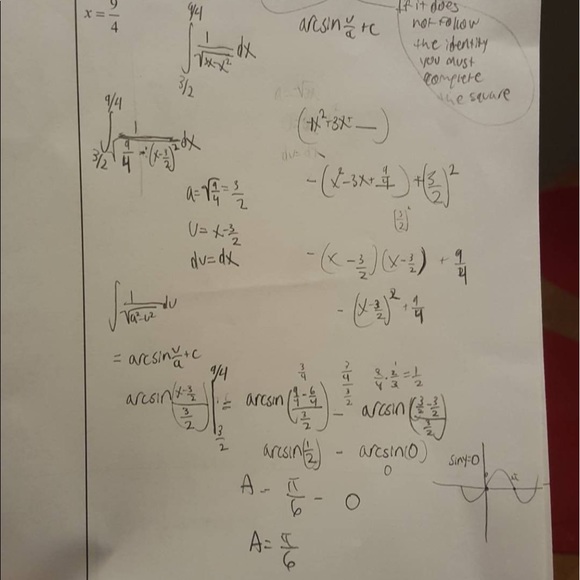 x = 9/4
∫_{3/2}^{9/4} 1/√(3x-x²) dx
arcsin u/a + c
If it does
not follow
the identity
you must
complete
the square
∫_{3/2}^{9/4} 1/√(9/4 - (x-3/2)²) dx
(-x²+3x+__)
-(x²-3x+9/4)+(3/2)²
a=√9/4=3/2
(3/2)²
u=x-3/2
du=dx
-(x-3/2)(x-3/2)+9/4
∫ 1/√(a²-u²) du
-(x-3/2)²+9/4
= arcsin u/a + c
arcsin((x-3/2)/(3/2)) |_{3/2}^{9/4}
3/4
arcsin((9/4-6/4)/(3/2)) - arcsin((3/2-3/2)/(3/2))
(3/4)/(3/2)
3/4 · 2/3 = 1/2
arcsin(1/2) - arcsin(0)
0
sin y=0
A = π/6 - 0
A = π/6